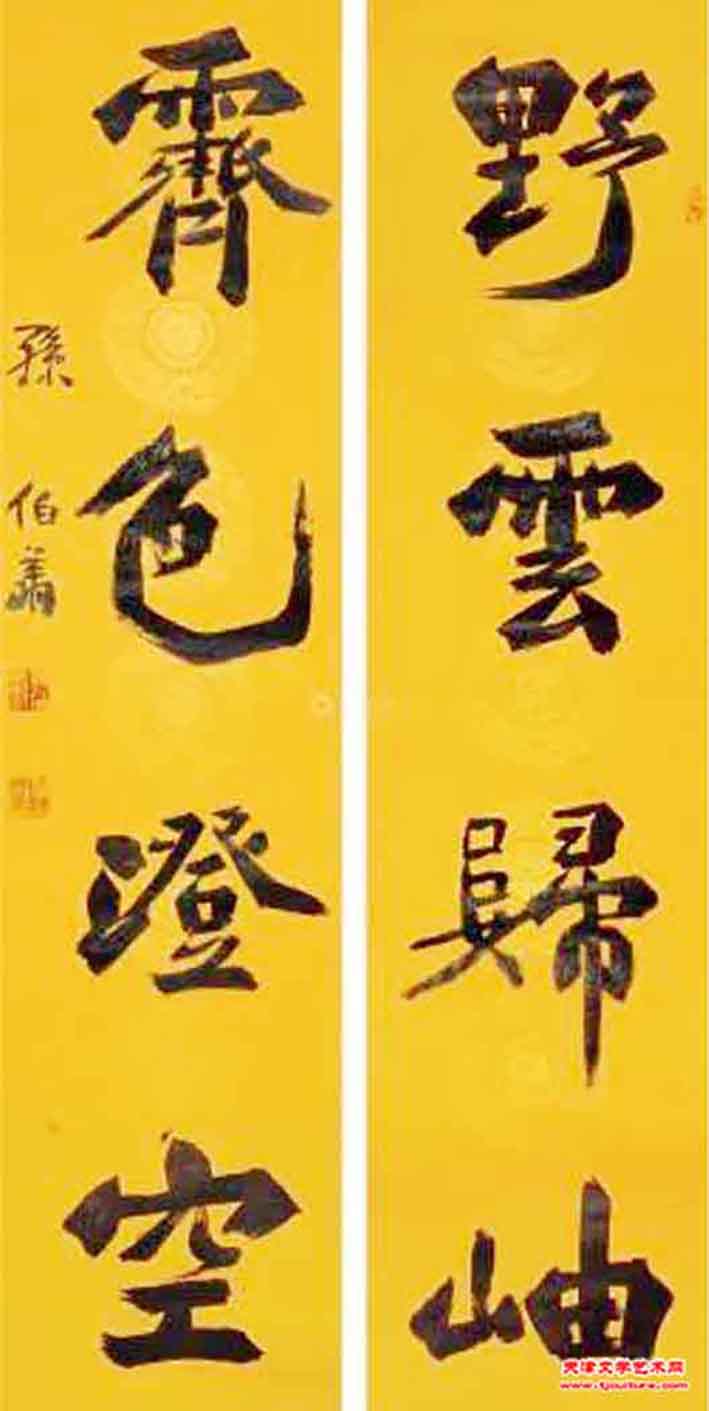 野雲歸岫
霽色澄空
孫伯翥
天津文学艺术网
www.tjculture.com